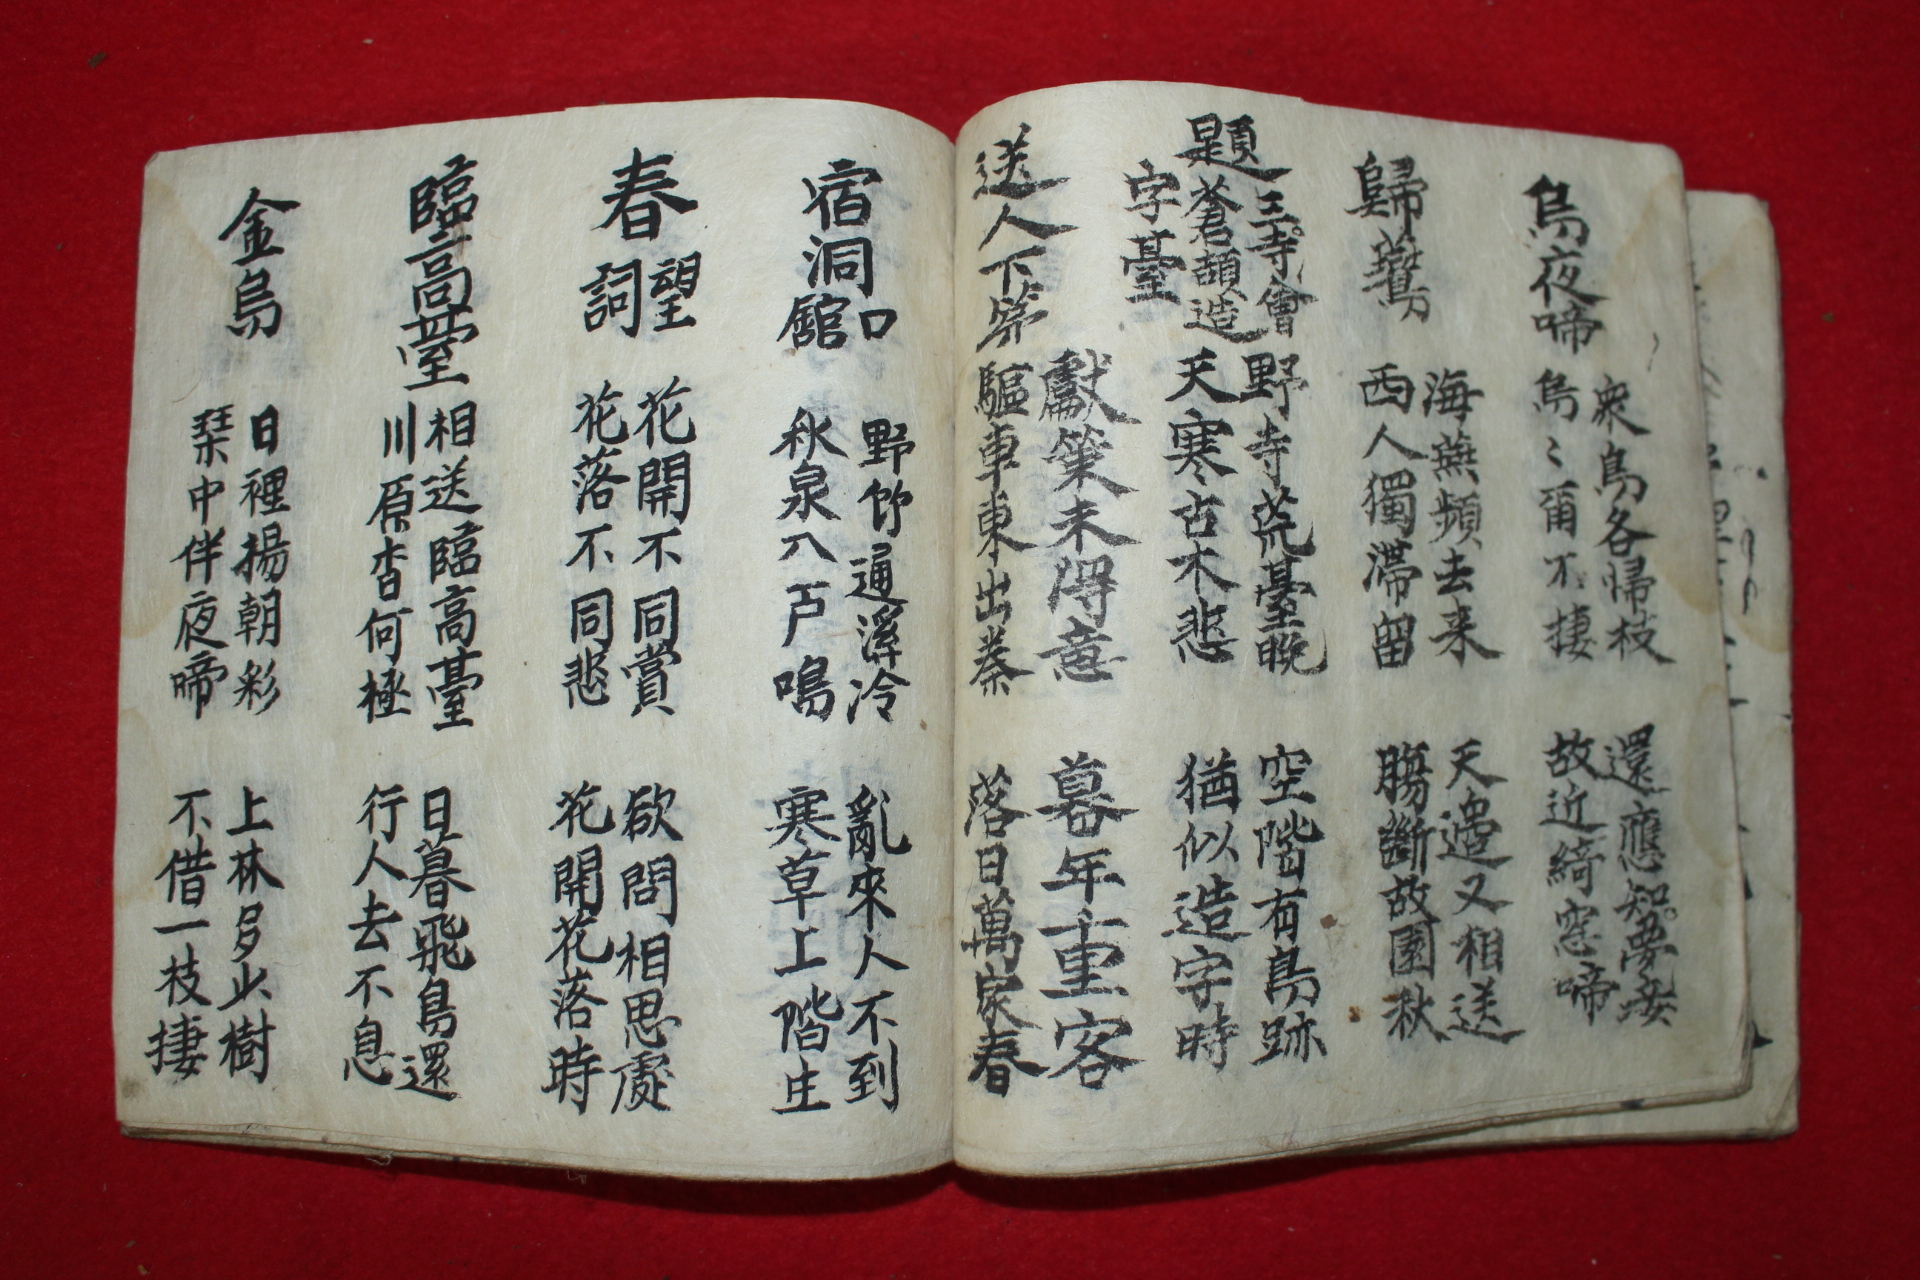 烏夜啼
衆鳥各帰枝
烏〻爾不捿
還應知妾
故近綺窓啼
歸鴈
海燕頻去来
西人獨滯留
天邉又相送
膓斷故園秋
題三寺會
蒼頡造
字臺
野寺荒臺晩
天寒古木悲
空階有鳥跡
猶似造字時
送人下第
獻策未得意
驅車東出秦
暮年重客
落日萬家春
宿洞口
舘
野竹通溪冷
秋泉入戸鳴
亂來人不到
寒草上階生
春望
詞
花開不同賞
花落不同悲
欲問相思處
花開花落時
臨高臺
相送臨高臺
川原杳何極
日暮飛鳥還
行人去不息
金烏
日裡揚朝彩
琹中伴夜啼
上林多少樹
不借一枝捿